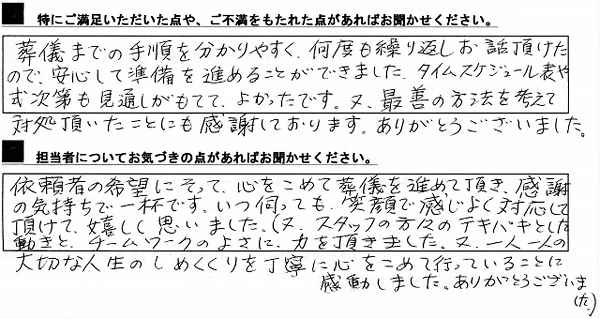 特にご満足いただいた点や、ご不満をもたれた点があればお聞かせください。
葬儀までの手順を分かりやすく、何度も繰り返しお話頂けた
ので、安心して準備を進めることができました。タイムスケジュール表や
式次第も見通しがもてて、よかったです。又、最善の方法を考えて
対処頂いたことにも感謝しております。ありがとうございました。
担当者についてお気づきの点があればお聞かせください。
依頼者の希望にそって、心をこめて葬儀を進めて頂き、感謝
の気持ちで一杯です。いつ伺っても、笑顔で感じよく対応して
頂けて、嬉しく思いました。(又、スタッフの方々のテキパキとした
動きと、チームワークのよさに、力を頂きました。又、一人一人の
大切な人生のしめくくりを丁寧に心をこめて行っていることに
感動しました。ありがとうございま
(た。)